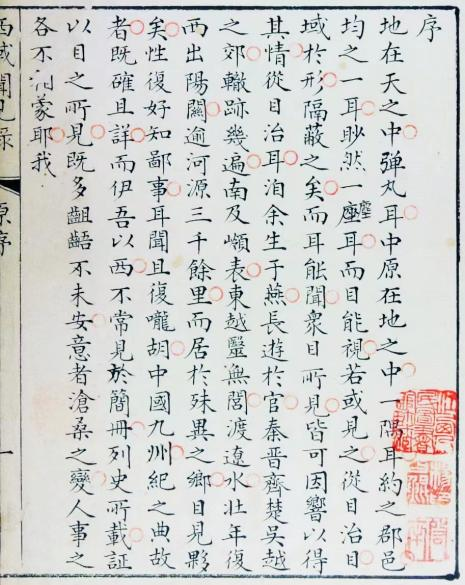 序
地在天之中弹丸耳中原在地之中一隅耳約之郡邑
均之一耳眇然一座塵耳而目能視若或見之從目治目
域於形隔蔽之矣而耳能聞衆目所見皆可因響以得
其情從目治耳洎余生于燕長遊於官秦晉齊楚吳越
之郊轍跡幾遍南及嶺表東越毉無閭渡遼水壯年復
西出陽關逾河源三千餘里而居於殊異之鄉目見夥
矣性復好知鄙事耳聞且復嚨胡中國九州紀之曲故
者既確且詳而伊吾以西不常見於簡冊列史所載証
以目之所見既多齟齬不未安意者滄桑之變人事之
各不蒙耶我
西域聞見錄 原序 一